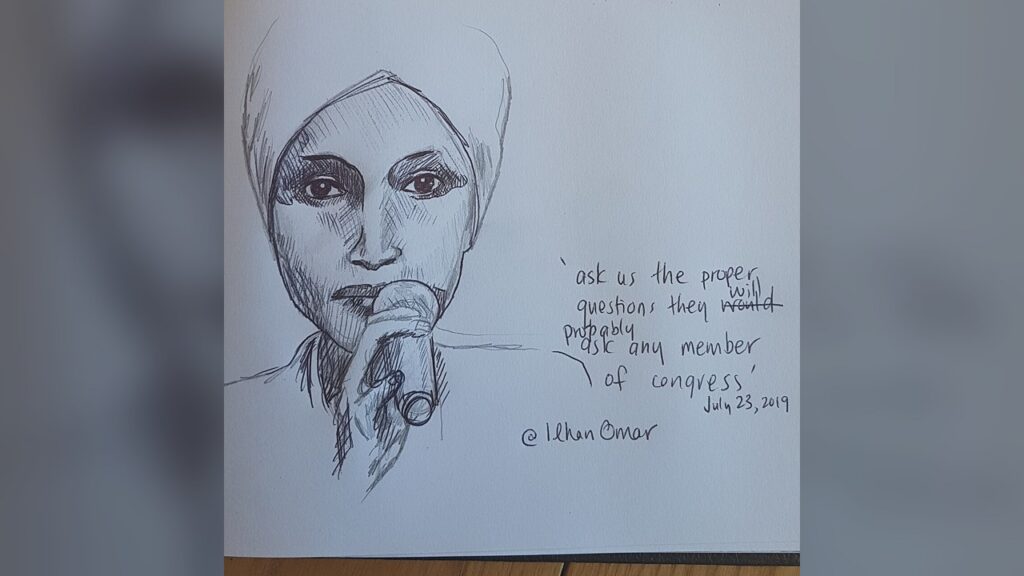 'ask us the proper
will
questions they would
probably
ask any member
of congress'
July 23, 2019
@IlhanOmar